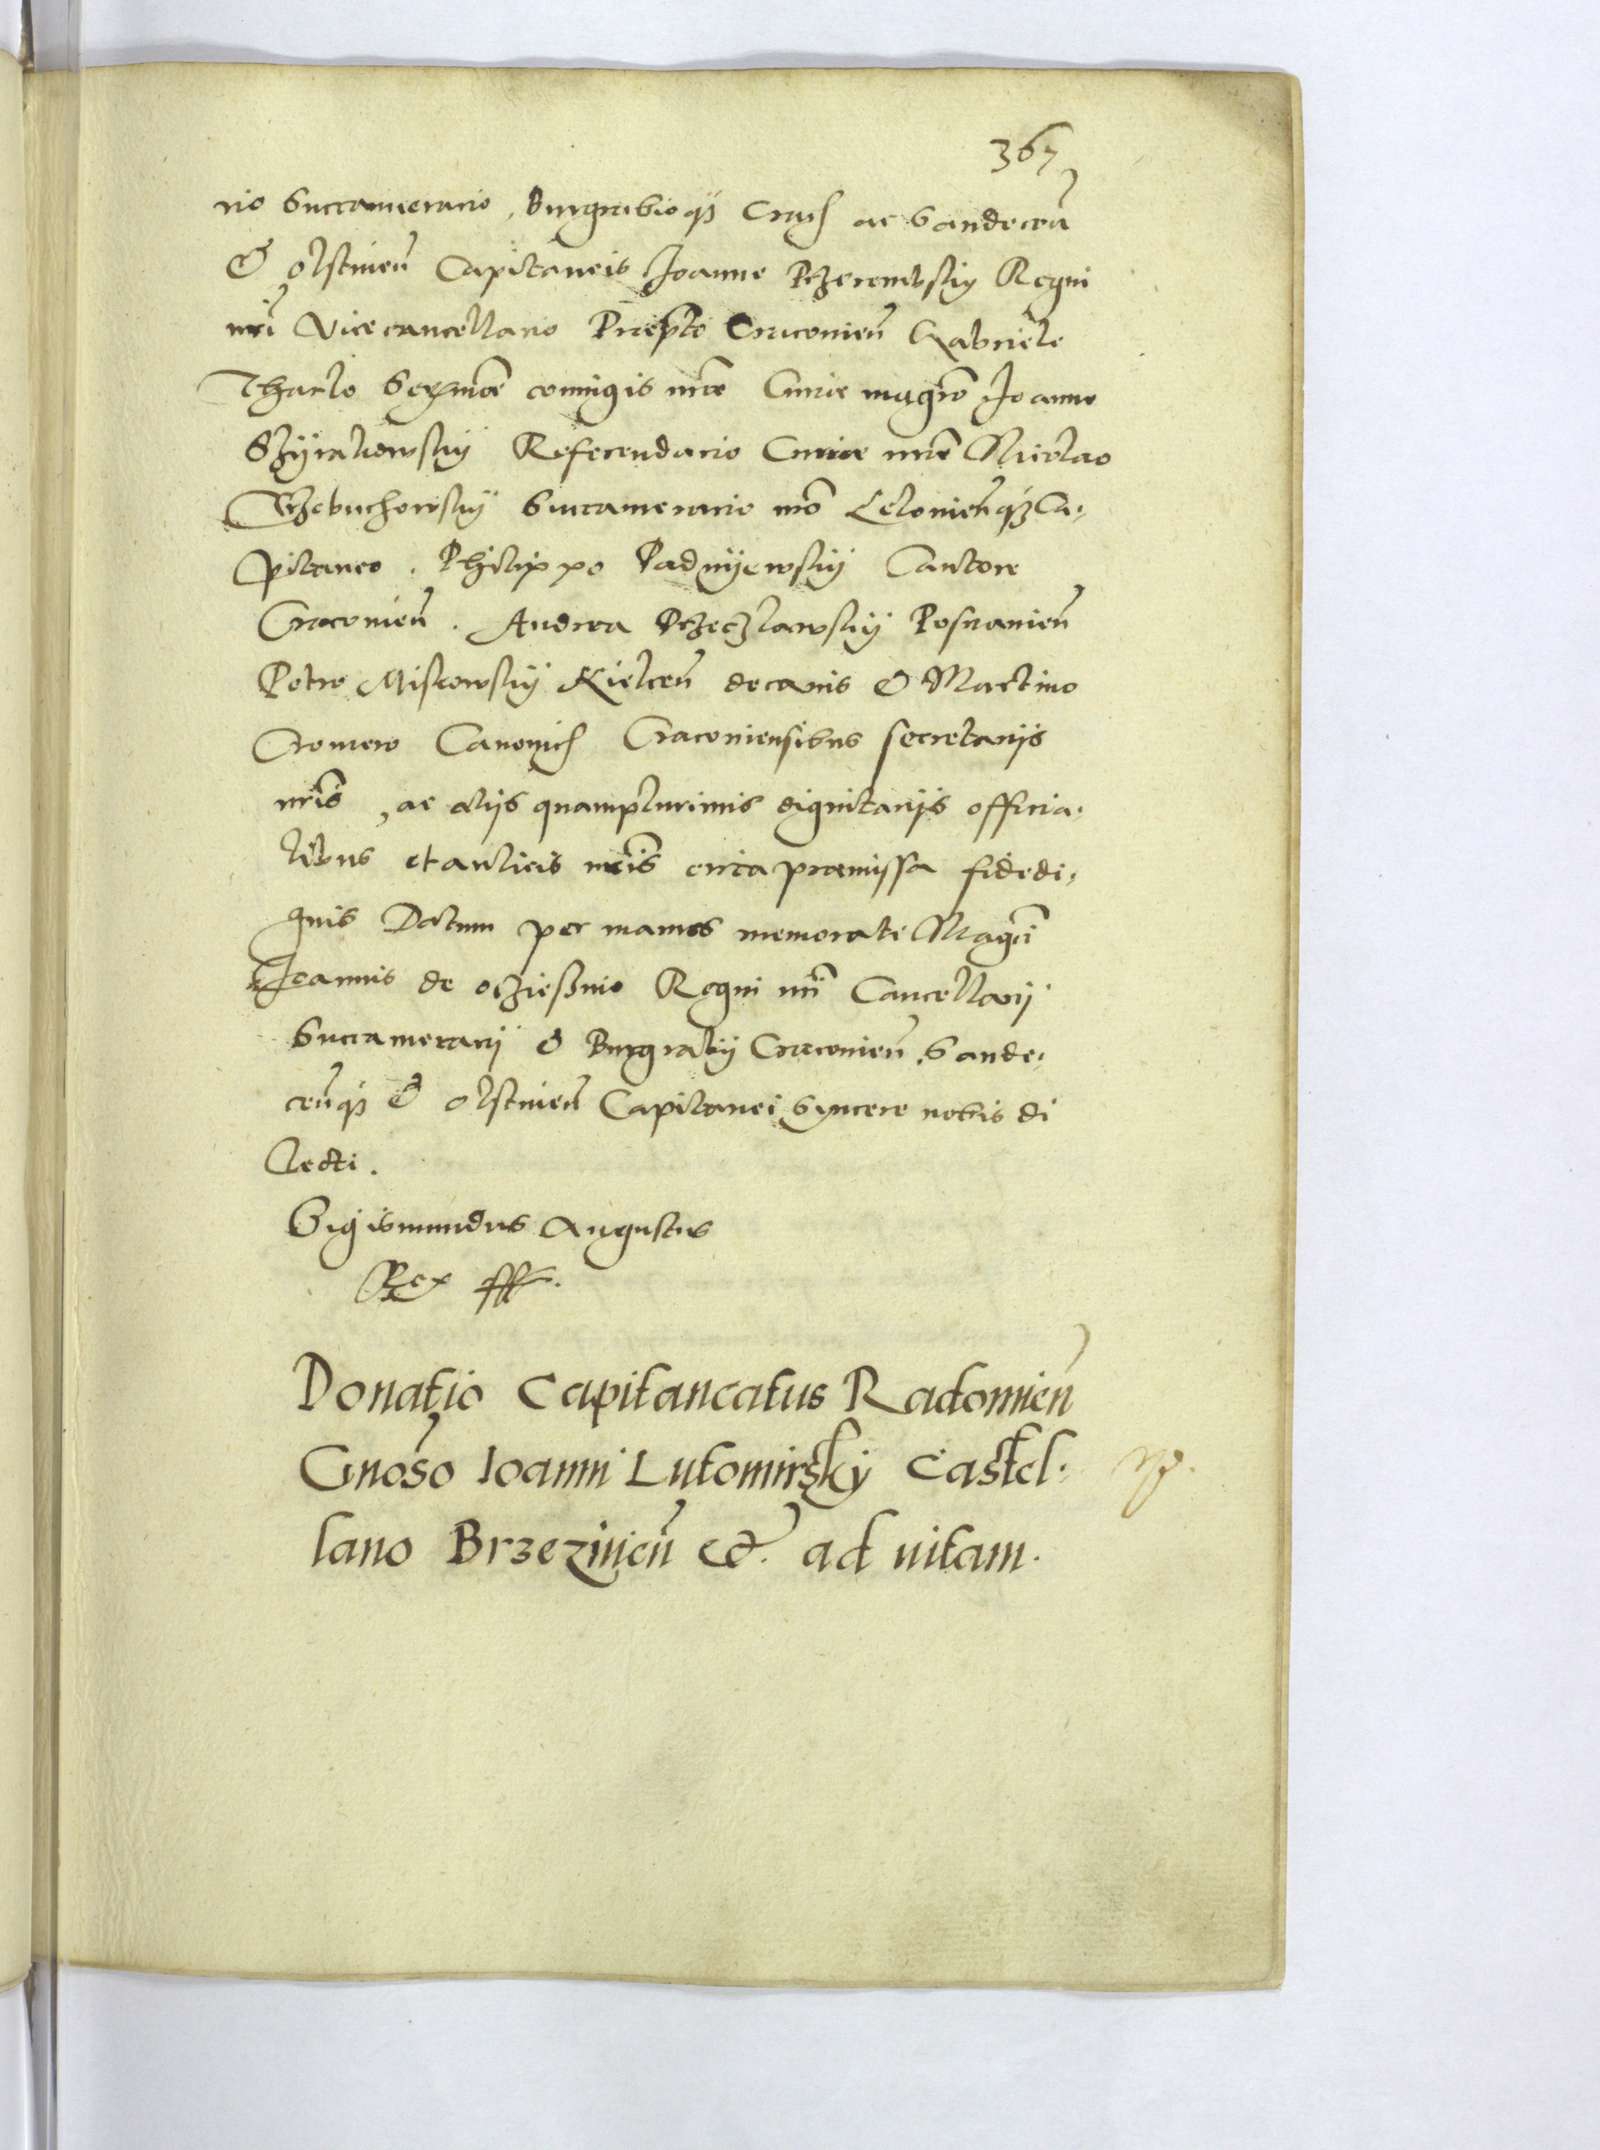 367
rio Succamerario, Burgrabioq3 Crac ac Sandecen̄
& olstinen̄ Capitaneis Joanne Przerembskÿ Regni
nr̄i Vicecancellario Praep̄to Cracovien̄ Gabriele
Tharlo Ser̄mae coniugis nr̄ae Curiae magr̄o Joanne
Szÿrakowskÿ Referendario Curiae nr̄ae Nicolao
Trzebuchowskÿ Succamerario nr̄o Lelovien̄q3 Ca-
pitaneo. Philippo Padnÿewskÿ Cantore
Cracovien̄. Andrea Przeczlawskÿ Posnanien̄
Petro Miscowskÿ Kielcen̄ decanis & Martino
Cromero Canonic Cracoviensibus secretarijs
nr̄is, ac alijs quamplurimis dignitarijs officia-
libus et aulicis nr̄is circa praemissa fidedi-
gnis Datum per manus memorati Magci
Joannis de ocziessino Regni nr̄i Cancellarij
Succamerarij & Burgrabij Cracovien̄, Sande-
cen̄q3 & olstinen̄ Capitanei Syncere nobis di
lecti.
Sigismundus Augustus
Rex
Donatio Capitaneatus Radomien̄
Gnōso Ioanni Lutomirskÿ Castel-
lano Brzezinen̄ &c. ad uitam.